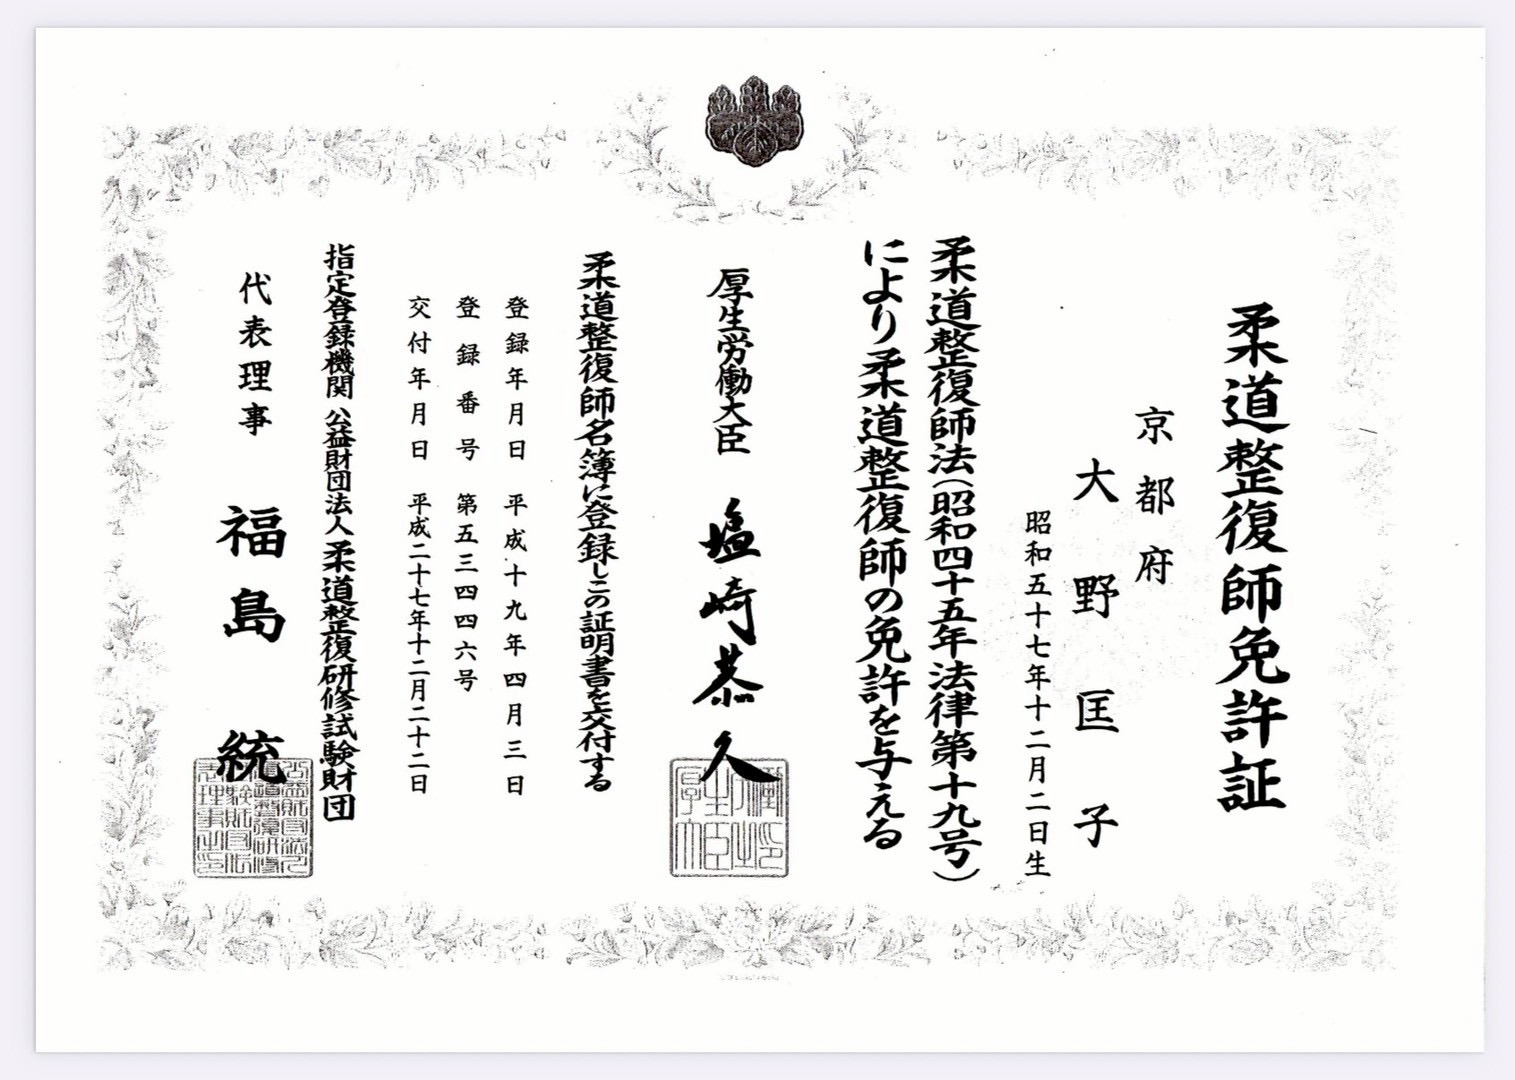 柔道整復師免許証
京都府
大野匡子
昭和五十七年十二月二日生
柔道整復師法(昭和四十五年法律第十九号)
により柔道整復師の免許を与える
厚生労働大臣 塩崎恭久
柔道整復師名簿に登録しこの証明書を交付する
登録年月日 平成十九年四月三日
登録番号 第五三四四六号
交付年月日 平成二十七年十二月二十二日
指定登録機関 公益財団法人 柔道整復研修試験財団
代表理事 福島 統